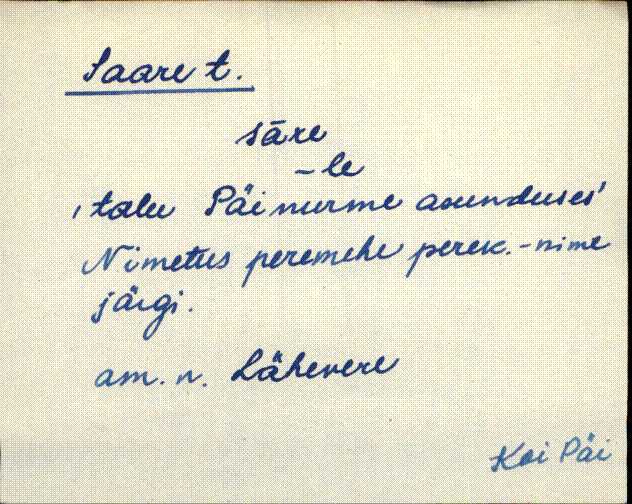 Saare t.
säre
-le
'talu Päinurme asunduses'
Nimetus peremehe perek.-nime
järgi.
am. n. Lähevere
Koi Päi